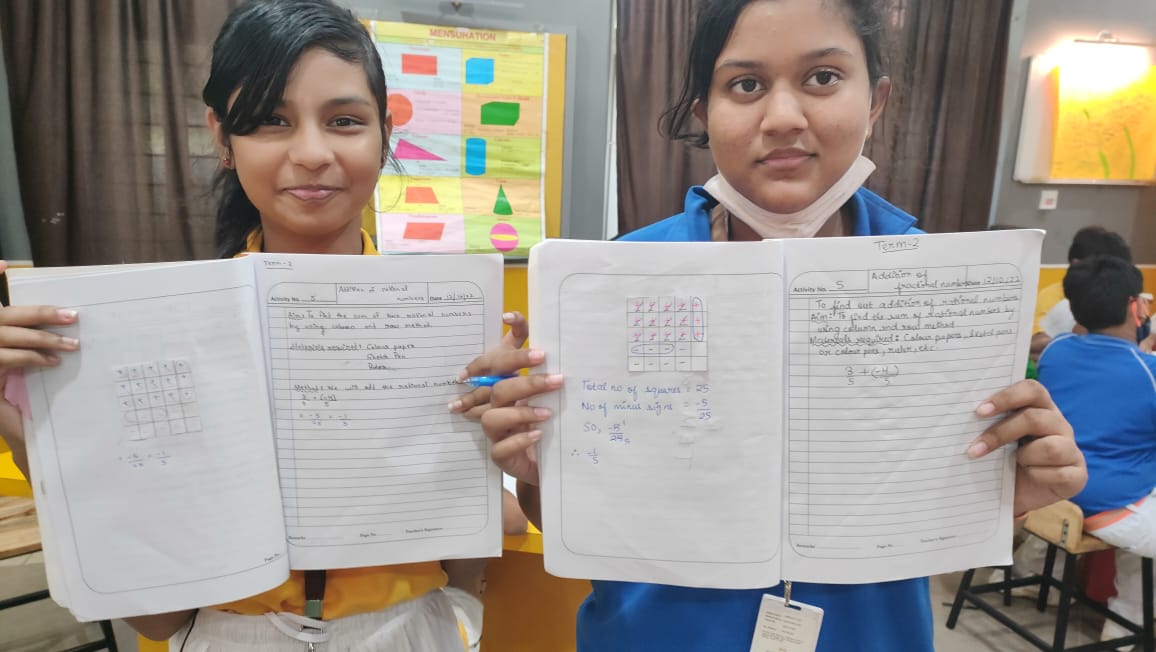 MENSURATION
Term-2
Activity No. 5
Addition of rational numbers
Date 12/10/22
Aim: To find the sum of two rational numbers
by using column and row method.
Materials required: Colour paper
Sketch Pen
Ruler
Method: We will add the rational number
3/5 + (-4)/5
= -5/25 = -1/5
= -5/25 = -1/5
Remarks
Page No.
Teacher's Signature
Total no of squares = 25
No of minus signs = -5/25
So, -5/25
∴ -1/5
Term-2
Activity No. 5
Addition of
fractional numbers
Date 12/10/22
To find out addition of rational numbers
Aim: To find the sum of rational numbers by
using column and row method
Materials required: Colour papers, sketch pens
or colour pens, ruler, etc
3/5 + (-4/5)
Remarks
Page No.
Teacher's Signature